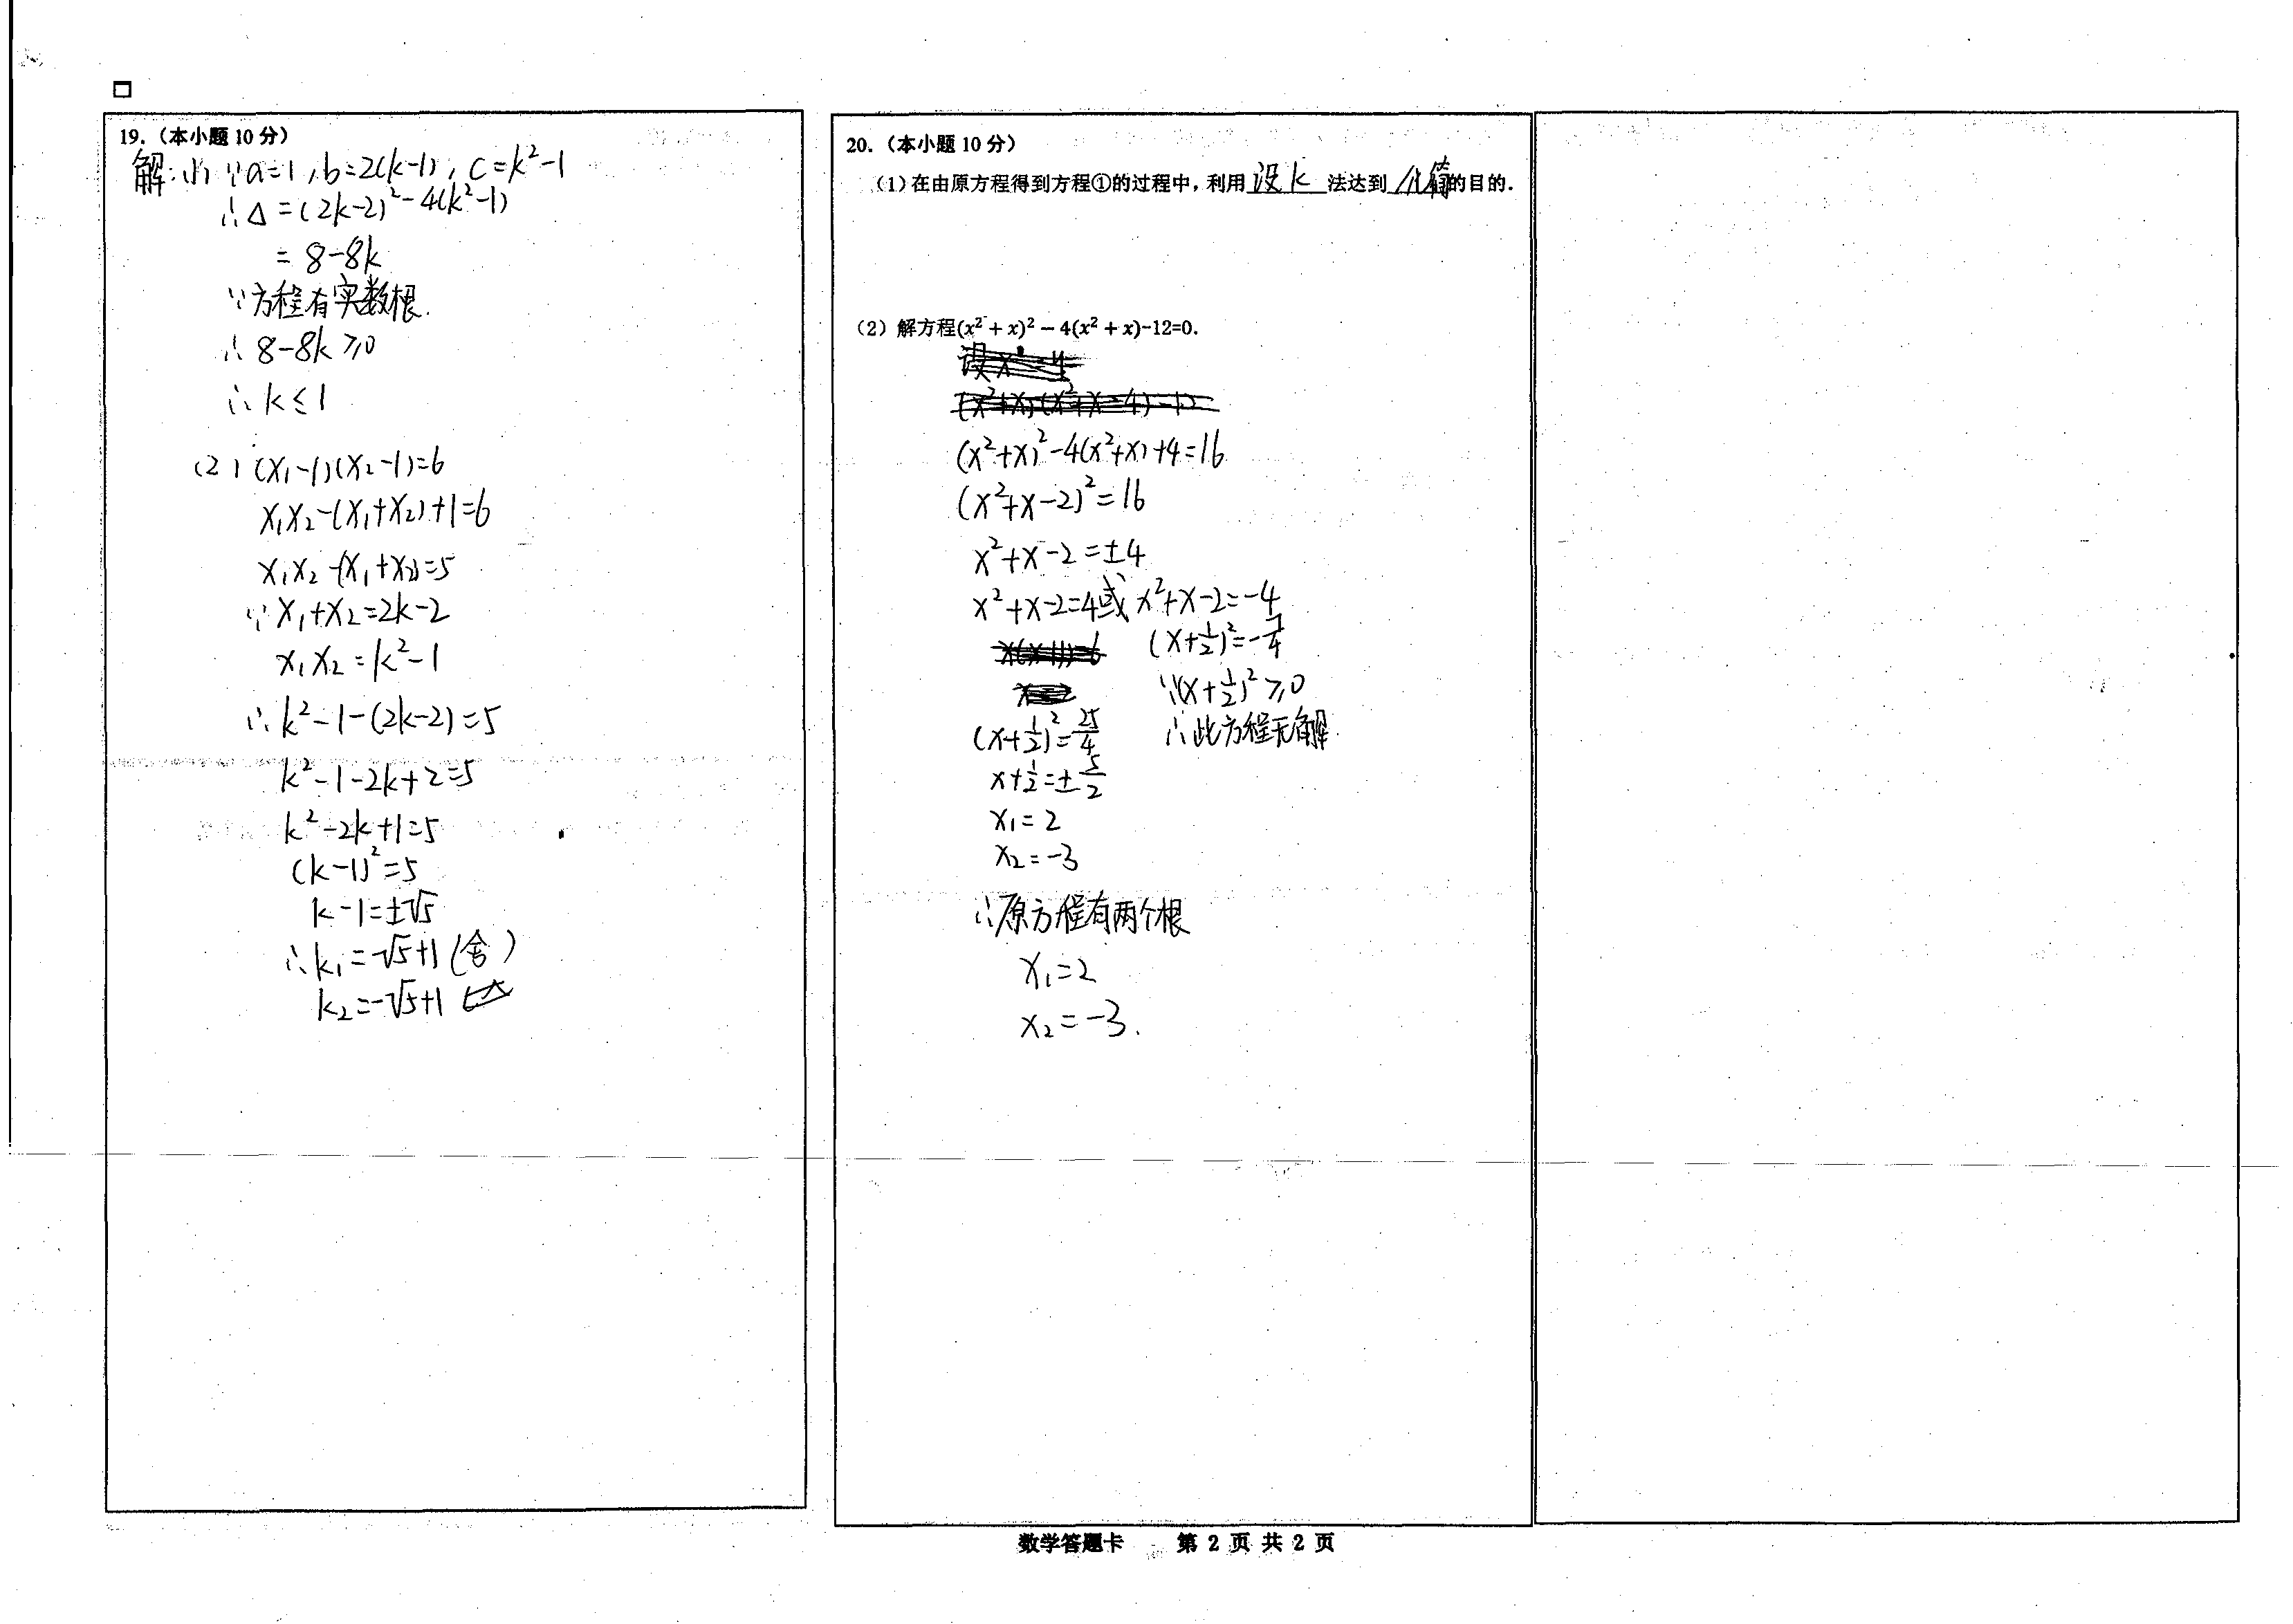 19.（本小题 10 分）
解:(1) ∵a=1,b=2(k-1),c=k²-1
∴Δ=(2k-2)²-4(k²-1)
=8-8k
∵方程有实数根.
∴8-8k≥0
∴k≤1
(2)(x₁-1)(x₂-1)=6
x₁x₂-(x₁+x₂)+1=6
x₁x₂-(x₁+x₂)=5
∵x₁+x₂=2k-2
x₁x₂=k²-1
∴k²-1-(2k-2)=5
k²-1-2k+2=5
k²-2k+1=5
(k-1)²=5
k-1=±√5
∴k₁=√5+1(舍)
k₂=-√5+1
20.（本小题 10 分）
（1）在由原方程得到方程①的过程中，利用 设k 法达到 化简 的目的.
（2）解方程(x²+x)²-4(x²+x)-12=0.
(x²+x)²-4(x²+x)+4=16
(x²+x-2)²=16
x²+x-2=±4
x²+x-2=4或x²+x-2=-4
(x+1/2)²=-7/4
∵(x+1/2)²≥0
∴此方程无解.
(x+1/2)²=25/4
x+1/2=±5/2
x₁=2
x₂=-3
∴原方程有两个根
x₁=2
x₂=-3.
数学答题卡 第 2 页 共 2 页